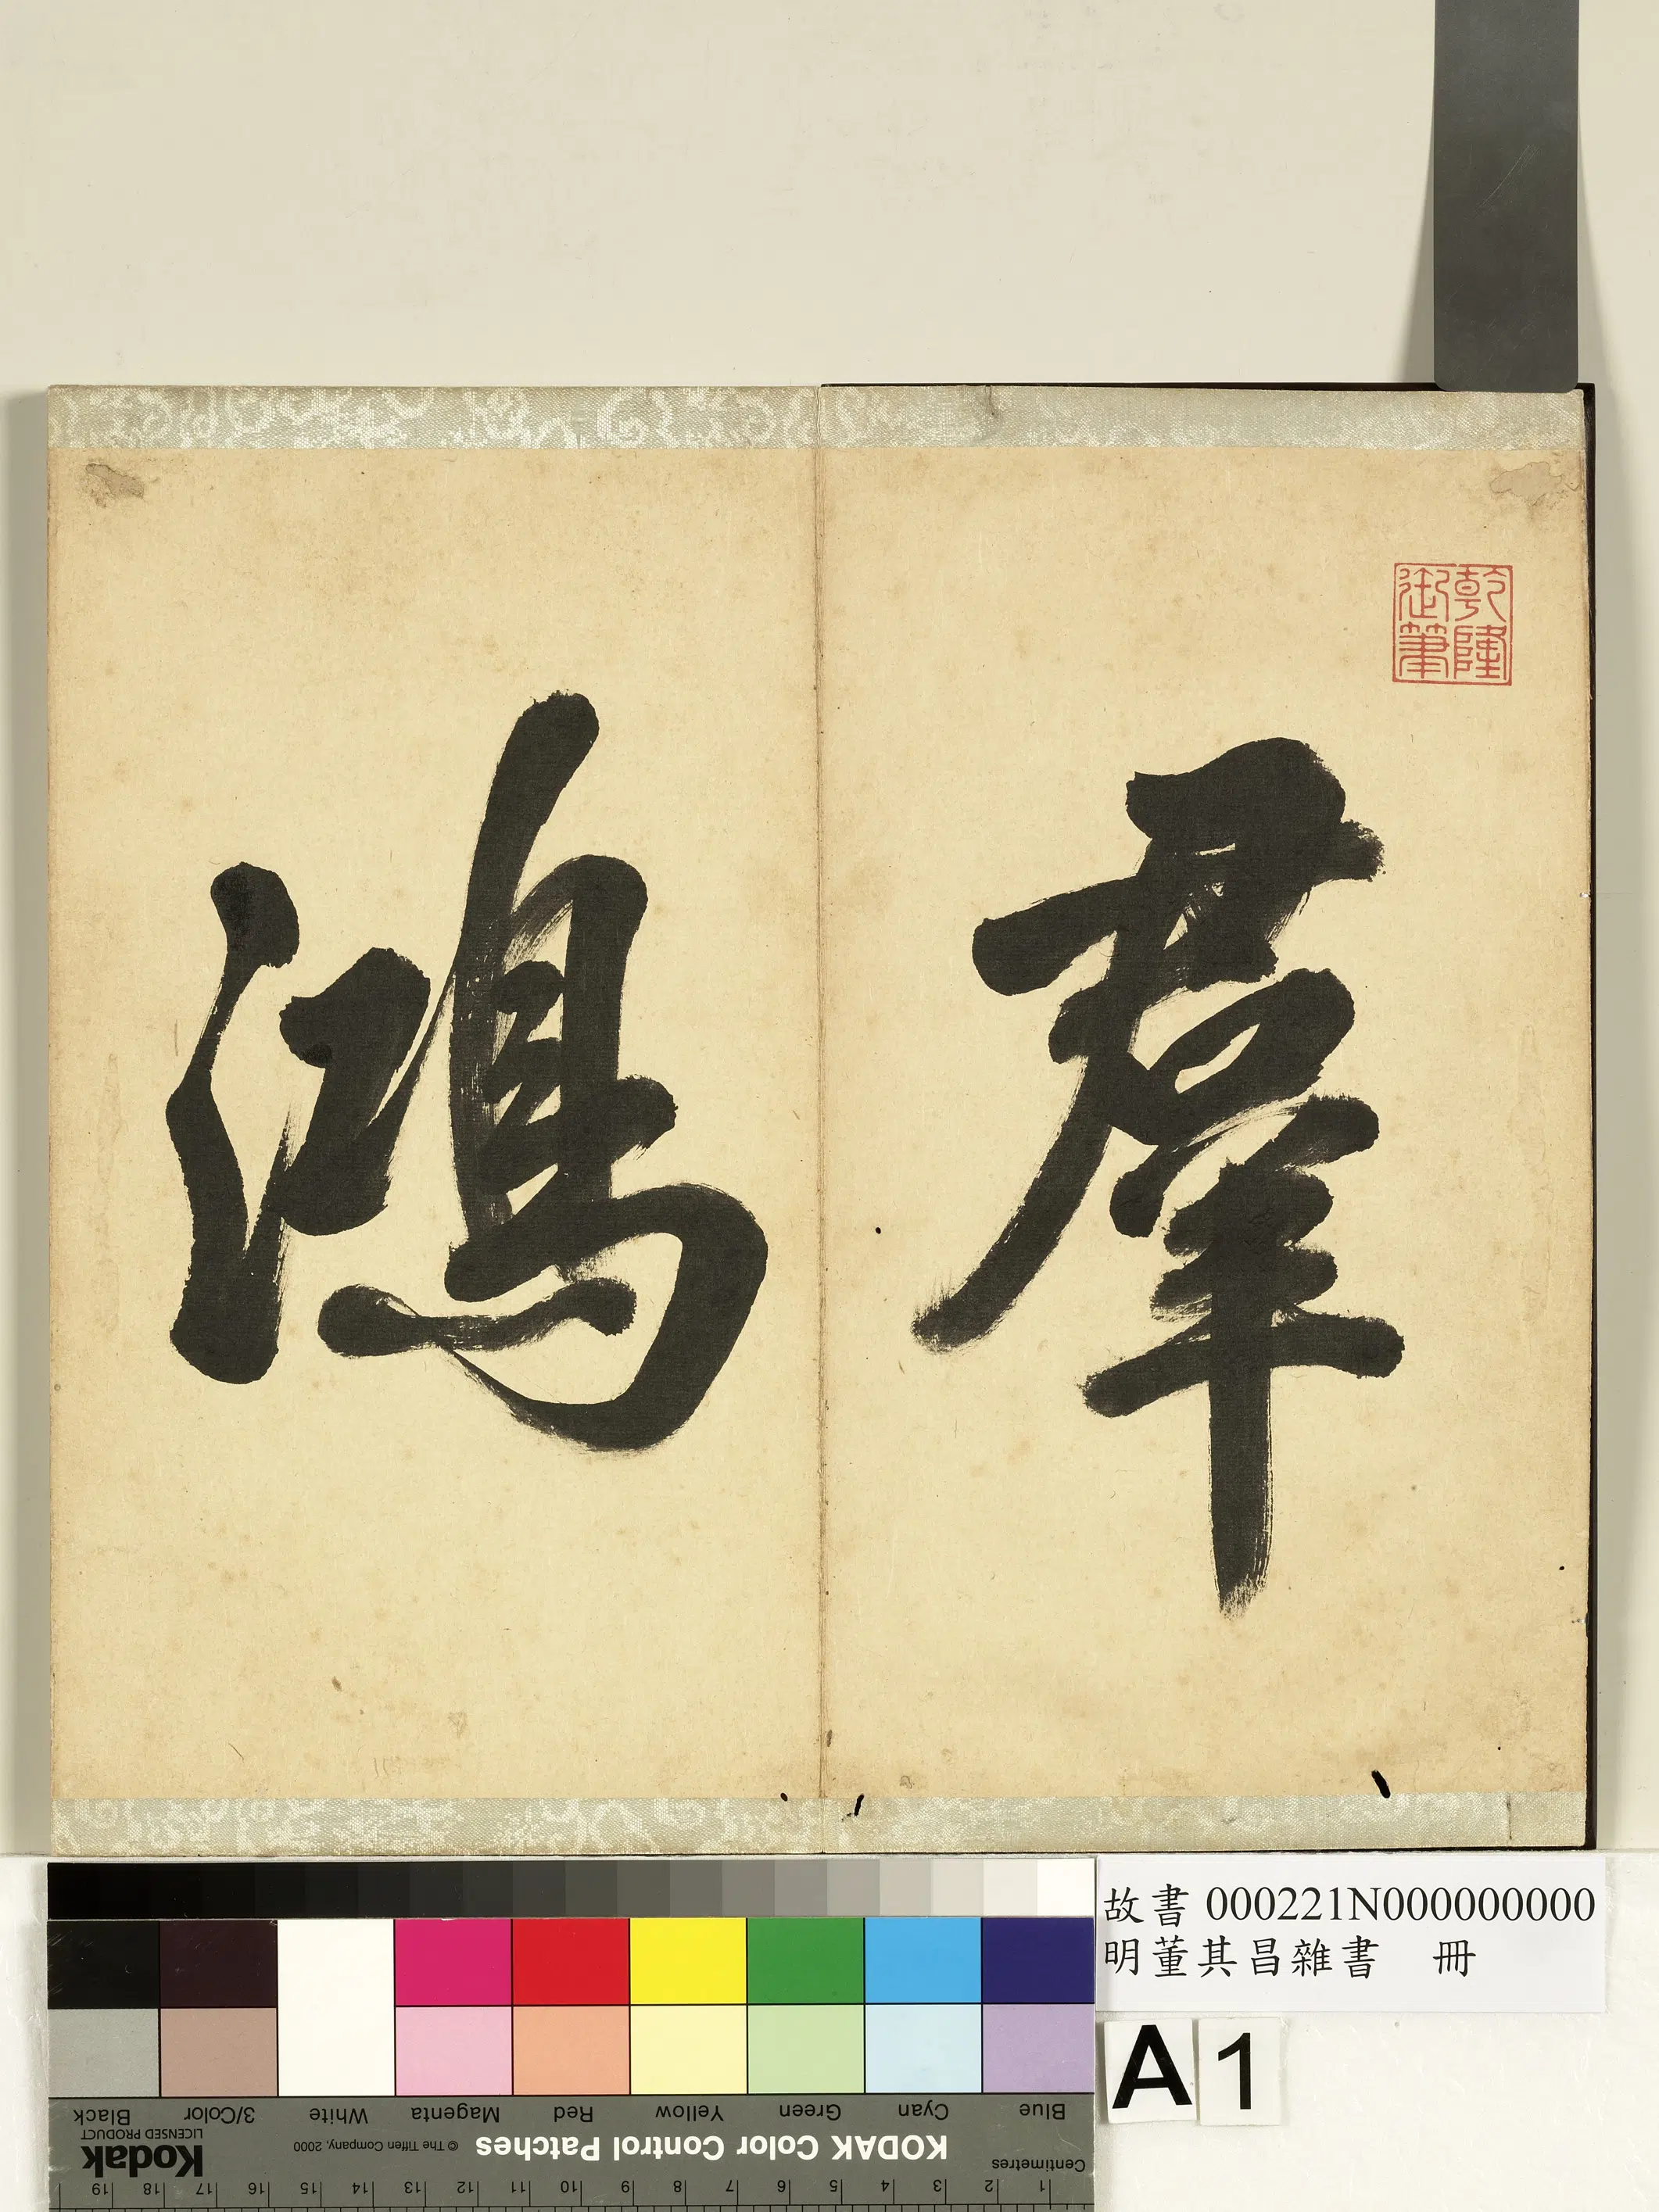 乾隆
御筆
羣
鴻
故書 000221N000000000
明董其昌雜書 冊
A 1
Blue Cyan Green Yellow Red Magenta White 3/Color Black
KODAK Color Control Patches © The Tiffen Company, 2000 Kodak
LICENSED PRODUCT
Centimetres
1 2 3 4 5 6 7 8 9 10 11 12 13 14 15 16 17 18 19